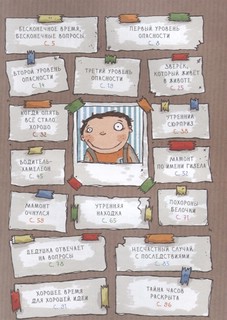 БЕСКОНЕЧНОЕ ВРЕМЯ,
БЕСКОНЕЧНЫЕ ВОПРОСЫ
С. 5
ПЕРВЫЙ УРОВЕНЬ
ОПАСНОСТИ
С. 8
ВТОРОЙ УРОВЕНЬ
ОПАСНОСТИ
С. 14
ТРЕТИЙ УРОВЕНЬ
ОПАСНОСТИ
ЗВЕРЕК,
КОТОРЫЙ ЖИВЕТ
В ЖИВОТЕ
С. 25
КОГДА ОПЯТЬ
ВСЁ СТАЛО
ХОРОШО
УТРЕННИЙ
СЮРПРИЗ
С. 38
ВОДИТЕЛЬ-
ХАМЕЛЕОН
С. 45
МАМОНТ
ПО ИМЕНИ ГИДЕЛА
С. 52
МАМОНТ
ОЧНУЛСЯ
С. 59
УТРЕННЯЯ
НАХОДКА
С. 65
ПОХОРОНЫ
БЕЛОЧКИ
С. 71
ДЕДУШКА ОТВЕЧАЕТ
НА ВОПРОСЫ
С. 78
НЕСЧАСТНЫЙ СЛУЧАЙ
С ПОСЛЕДСТВИЯМИ
ХОРОШЕЕ ВРЕМЯ
ДЛЯ ХОРОШЕЙ ИДЕИ
С. 91
ТАЙНА ЧАСОВ
РАСКРЫТА
С. 96